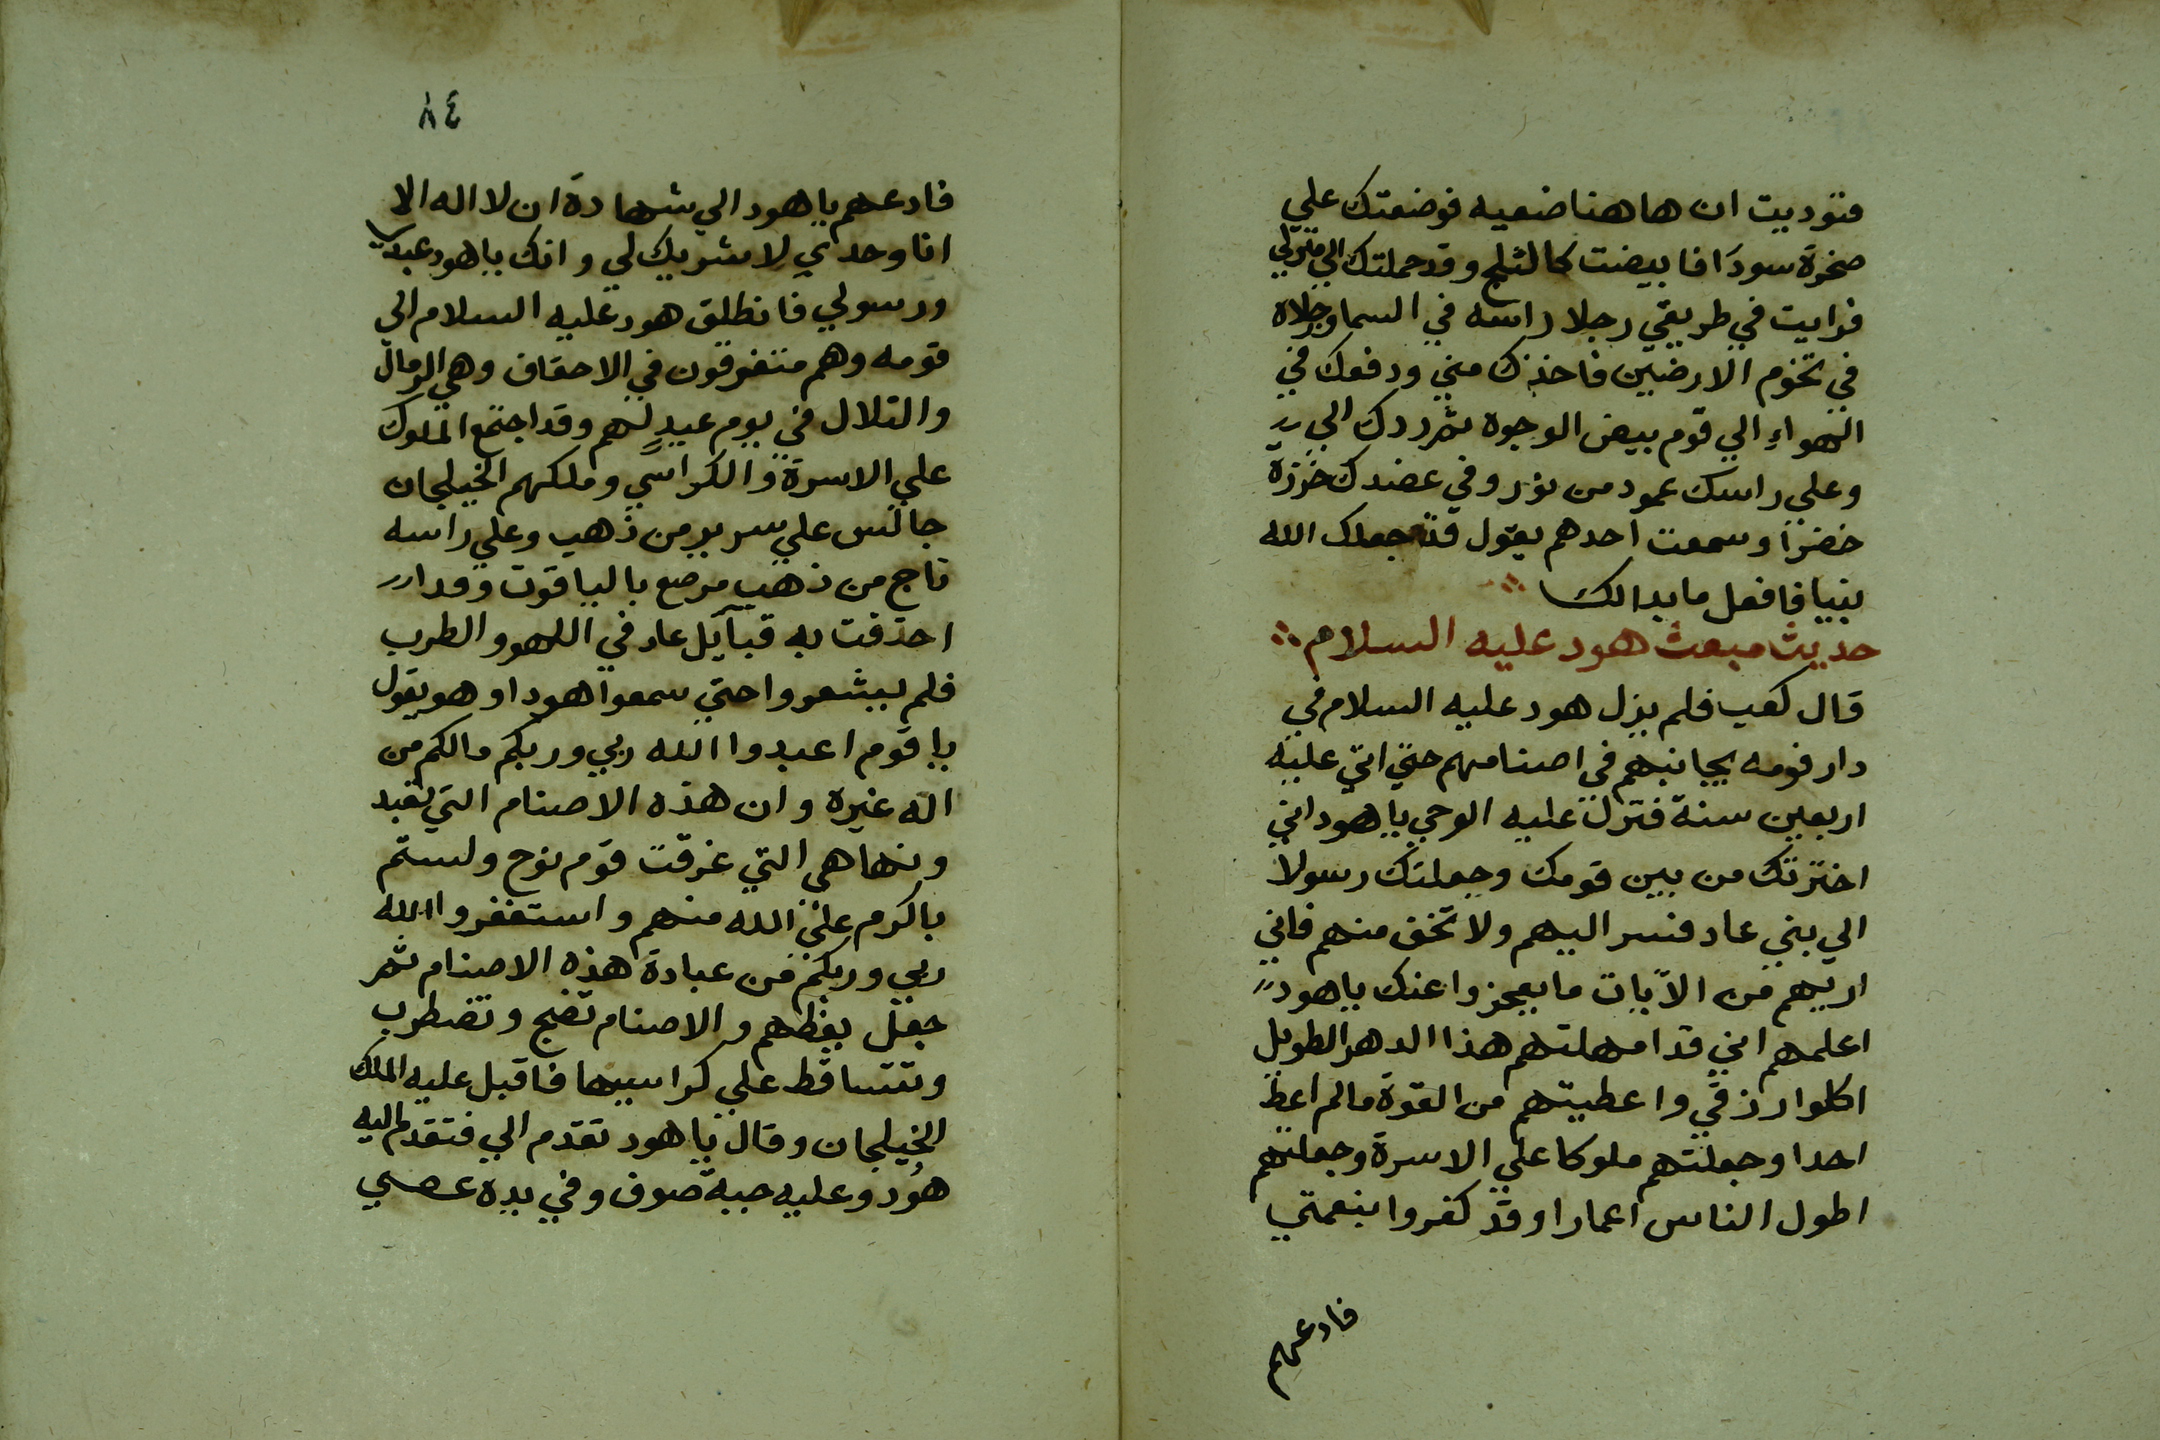 فنوديت ان هاهنا ضعيه فوضعتك علي
صخرة سودا فابيضت كالثلج وقد حملتك الي منزلي
فرايت في طريقي رجلا راسه في السما ورجلاه
في تخوم الارضين فاخذك مني ودفعك في
الهواء الي قوم بيض الوجوه ثم رددك الي
وعلي راسك عمود من نور وفي عضدك خرزة
خضرا وسمعت احدهم يقول قد جعلك الله
نبيا فافعل ما بدا لك
حديث مبعث هود عليه السلام
قال كعب فلم يزل هود عليه السلام في
دار قومه يجانبهم في اصنامهم حتي اتي عليه
اربعين سنة فنزل عليه الوحي ياهود اني
اخترتك من بين قومك وجعلتك رسولا
الي بني عاد فسر اليهم ولا تخف منهم فاني
اريهم من الآيات ما يعجزوا عنك ياهود
اعلمهم اني قد امهلتهم هذا الدهر الطويل
اكلوا رزقي واعطيتهم من القوة مالم اعط
احدا وجعلتهم ملوكا علي الاسرة وجعلتهم
اطول الناس اعمارا وقد كفروا بنعمتي
فادعهم
٨٤
فادعهم ياهود الي شهادة ان لا اله الا
انا وحدي لا شريك لي وانك ياهود عبدي
ورسولي فانطلق هود عليه السلام الي
قومه وهم متفرقون في الاحقاف وهي الرمال
والتلال في يوم عيد لهم وقد اجتمع الملوك
علي الاسرة والكراسي وملكهم الخيلجان
جالس علي سرير من ذهب وعلي راسه
تاج من ذهب مرصع بالياقوت وقد ادر
احدقت به قبآيل عاد في اللهو والطرب
فلم يشعروا حتي سمعوا هودا وهو يقول
ياقوم اعبدوا الله ربي وربكم مالكم من
اله غيره وان هذه الاصنام التي تعبد
ونها هي التي غرقت قوم نوح ولستم
باكرم علي الله منهم واستغفروا الله
ربي وربكم من عبادة هذه الاصنام ثم
جعل يعظهم والاصنام تضج وتضطرب
وتتساقط علي كراسيها فاقبل عليه الملك
الخيلجان وقال ياهود تقدم الي فتقدم اليه
هُود وعليه جبة صوف وفي يده عصي